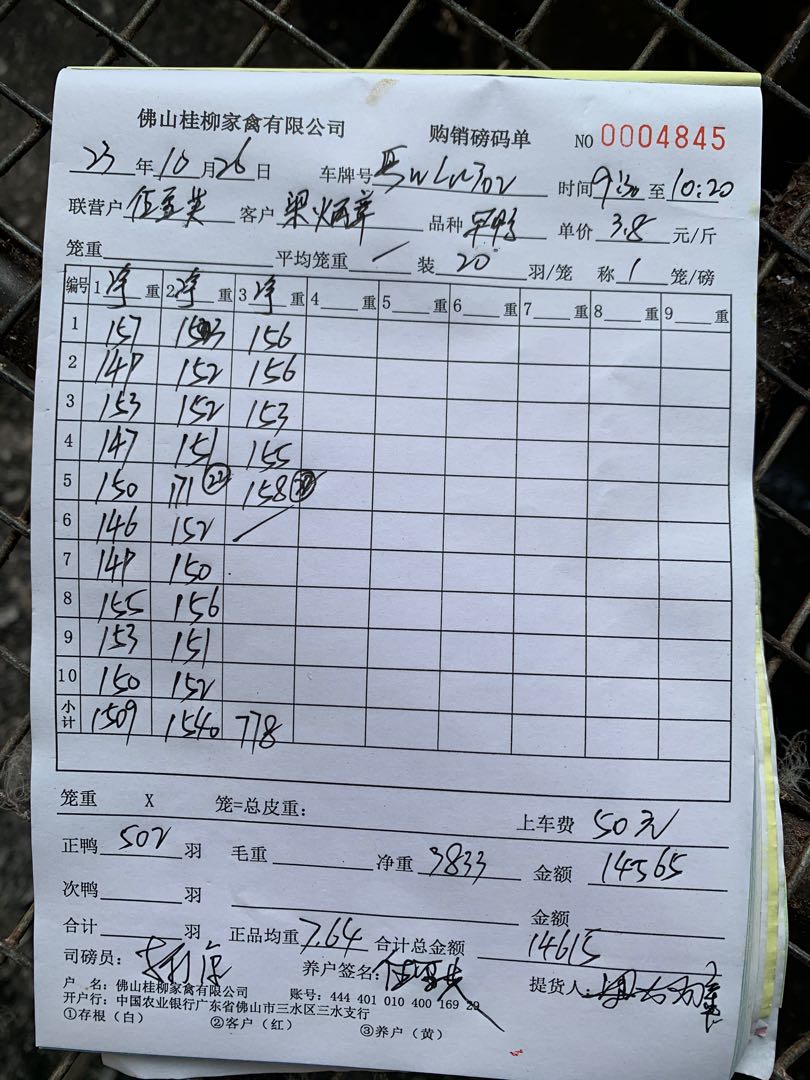 佛山桂柳家禽有限公司 购销磅码单 NO 0004845
23 年 10 月 26 日 车牌号 时间 9:30 至 10:20
联营户 伍玉英 客户 梁炳章 品种 单价 3.8 元/斤
笼重 平均笼重 / 装 20 羽/笼 称 1 笼/磅
编号 1 净 重 2 净 重 3 净 重 4 重 5 重 6 重 7 重 8 重 9 重
1 157 153 156
2 149 152 156
3 153 152 153
4 147 151 155
5 150 171 22 158
6 146 152 /
7 149 150
8 155 156
9 153 151
10 150 152
小计 1509 1540 778
笼重 X 笼=总皮重: 上车费 50元
正鸭 502 羽 毛重 净重 3833 金额 14565
次鸭 羽 金额
合计 羽 正品均重 7.64 合计总金额 14615
司磅员: 养户签名: 提货人:
户 名: 佛山桂柳家禽有限公司 账号: 444 401 010 400 169 29
开户行: 中国农业银行广东省佛山市三水区三水支行
①存根(白) ②客户(红) ③养户(黄)